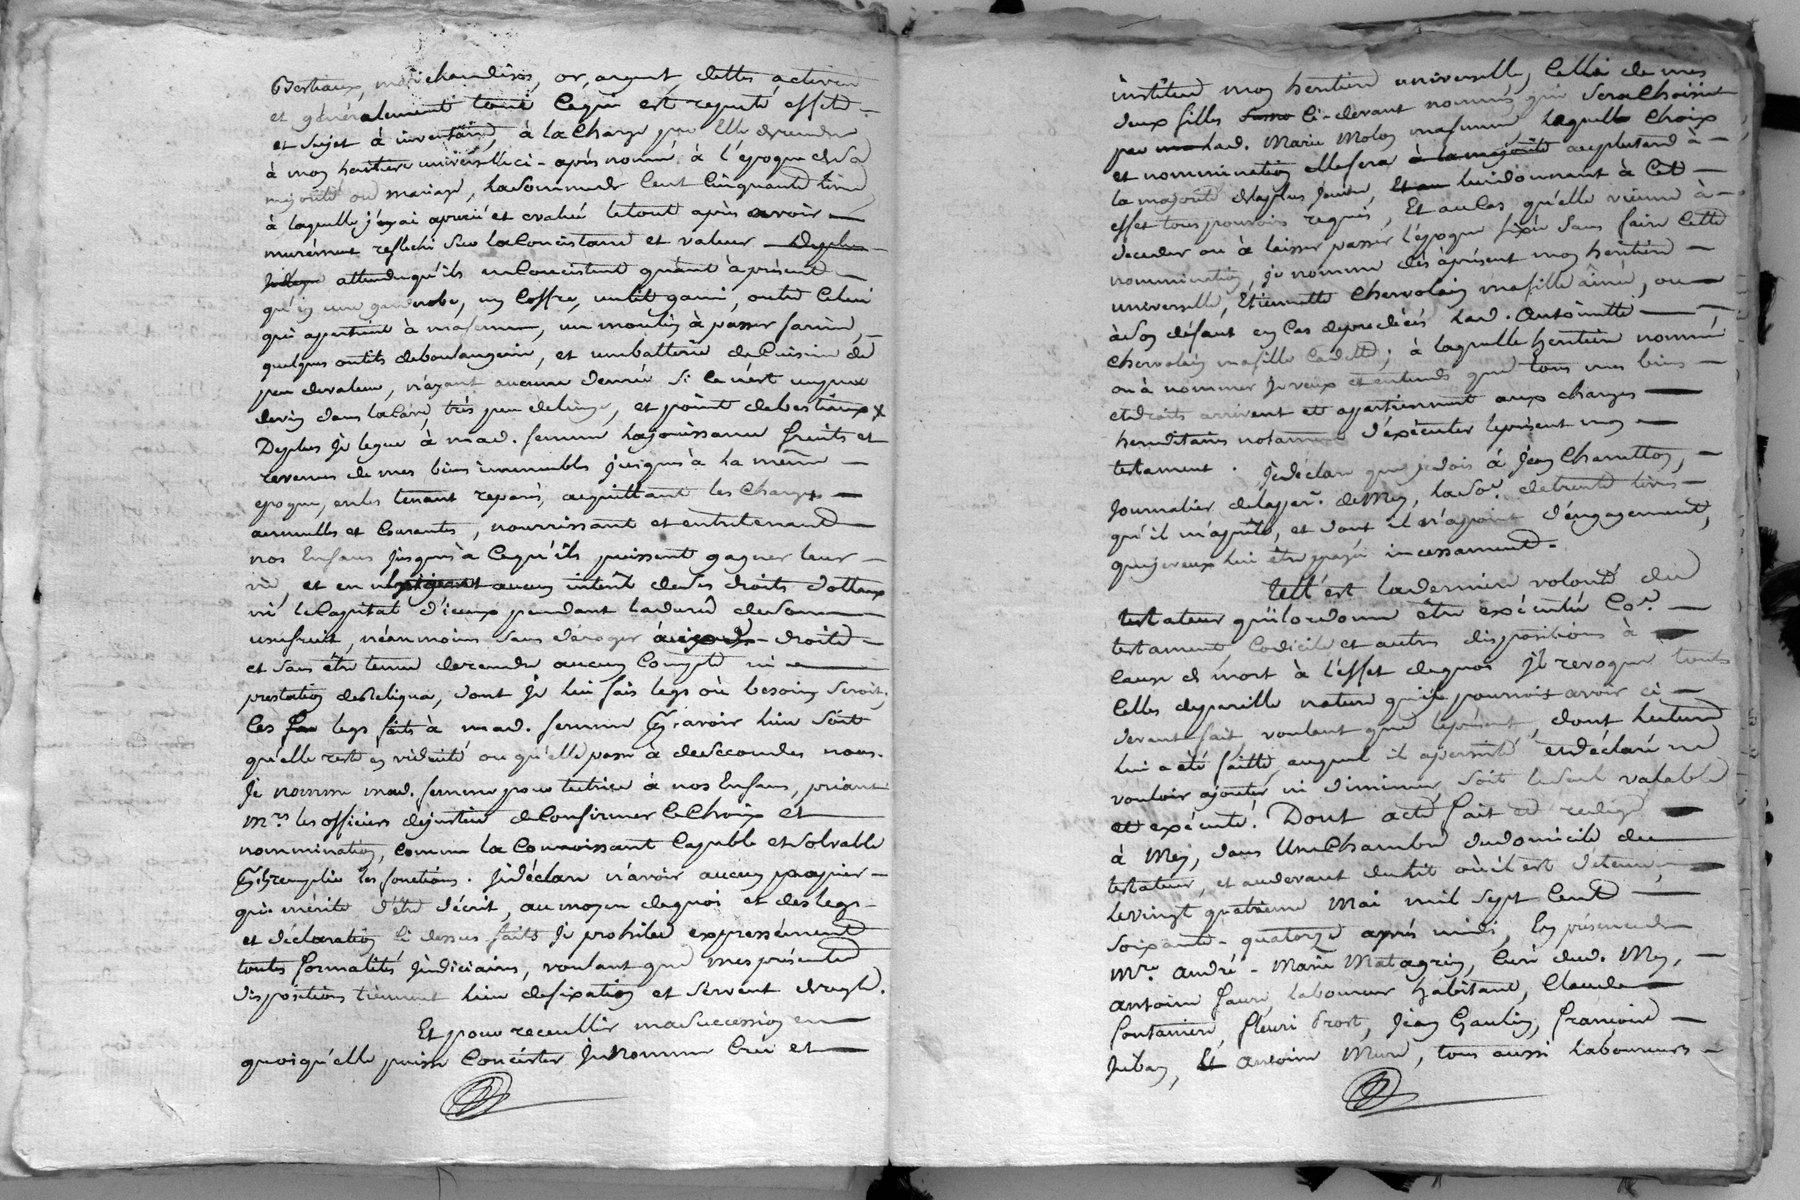 Bestiaux, marchandises, or, argent, dettes actives
et généralement tout ce qui est reputé effets
et sujet à inventaire, à la charge par elle de rendre
à mon heritiere universelle ci-après nommé à l'époque de sa
majorité ou mariage, la somme de cent cinquante livres
à laquelle j'ay aprecié et evalué le tout après avoir
murément reflechi sur la concistance et valeur
attendu qu'ils ne concistent quant à présent
qu'en une garderobe, un coffre, un lit garni, outre celui
qui appartient à ma femme, un moulin à passer farine,
quelques outils de boulangerie, et une batterie de cuisine de
peu de valeur, n'ayant aucune denrée si ce n'est un peu
de vin dans la cave, très peu de linge, et point de bestiaux x
De plus je legue à mad. femme la jouissance fruits et
revenus de mes biens immeubles jusques à la même
epoque, en les tenant reparés, acquittant les charges
annuelles et courantes, nourrissant et entretenant
nos Enfans jusques à ce qu'ils puissent gagner leur
vie, et en n'exigeant aucun interêt de ses droits dottaux
ni le capital d'iceux pendant la durée de son
usufruit, néanmoins sans déroger à droits
et sans être tenue de rendre aucun compte ni
prestation de reliqua, dont je lui fais legs où besoin seroit,
ces legs faits à mad. femme avoir lieu soit
qu'elle reste en viduité ou qu'elle passe à de secondes noces.
Je nomme mad. femme pour tutrice à nos Enfans, priant
Mrs les officiers de justice de confirmer ce choix et
nommination, comme la connoissant capable et solvable
remplir les fonctions. Je déclare n'avoir aucun papier
qui mérite d'être décrit, au moyen de quoi et des legs
et déclaration ci dessus faits je prohibe expressément
toutes formalités judiciaires, voulant que mes présentes
dispositions tiennent lieu de fixation et servent de regle.
Et pour recueillir ma succession en
quoi qu'elle puisse concister je nomme crée et
institue mon heritiere universelle, celle de mes
deux filles ci-devant nommées qui sera choisie
par lad. Marie Molon ma femme laquelle choix
et nommination elle fera à la majorité au plus tard à
la majorité de la plus jeune, lui donnant à cet
effet tous pouvoirs requis, Et au cas qu'elle vienne à
décéder ou à laisser passer l'époque fixée sans faire cette
nommination, je nomme dès àprésent mon heritiere
universelle, Etiennette Chervolain ma fille ainée, ou
à son défaut en cas de predécès lad. Antoinette
Chervolain ma fille cadette; à laquelle heritiere nommée
ou à nommer je veux et entends que tous mes biens
et droits arrivent et appartiennent aux charges
hereditaires notamment d'exécuter le présent mon
testament. Je déclare que je dois à Jean Charretton,
Journalier de la parr. de Mey, la soe. de trente livres
qu'il m'a prêté, et dont il n'a point d'engagement,
que je veux lui être payée incessamment.
Tell'est la derniere volonté du
testateur qu'il ordonne être exécutée coe.
testament, codicile et autres dispositions à
cause de mort à l'effet de quoi il revoque toutes
celles de pareille nature qu'il pourroit avoir ci
devant fait voulant que le présent, dont lecture
lui a été faitte, auquel il a persisté et déclaré ne
vouloir ajouter ni diminuer, soit le seul valable
et exécuté. Dont acte fait et redigé
à Mey, dans Une chambre du domicile du
testateur, et au devant du lit où il est detenu,
le vingt quatrieme Mai mil sept cent
soixante-quatorze après midi, En présence de
Mre. André-Marie Matagrin, curé dud. Mey,
Antoine Favre laboureur habitant, Claude
Fontaniere fleuri Prost, Jean Gaulin, françois
Juban, Et Antoine Mure, tous aussi laboureurs